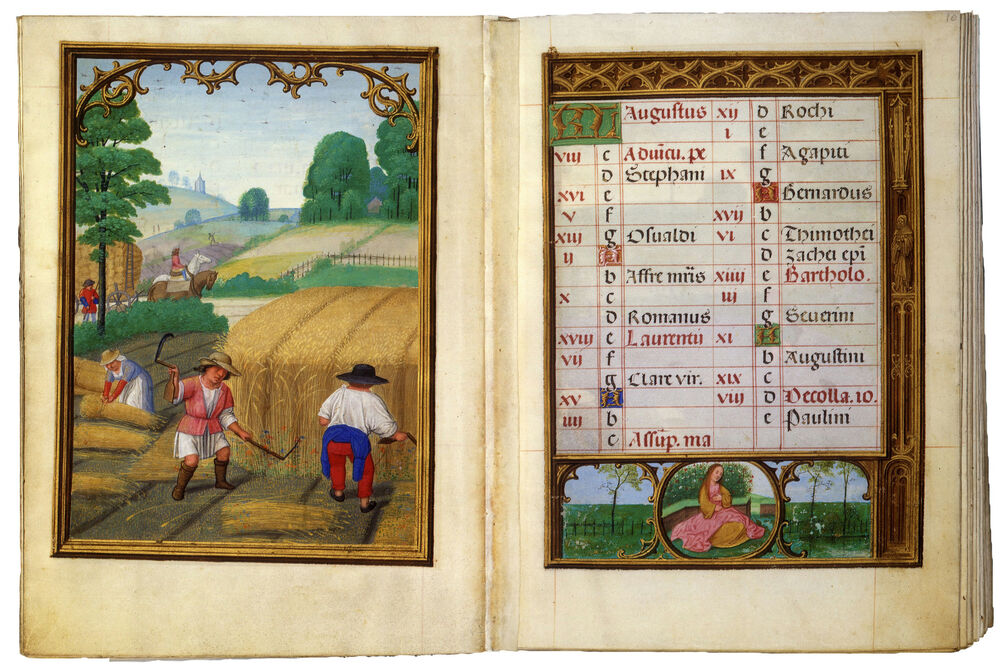 10
KL Augustus
viij c Aduicu. pe
d Stephani
xvi e
v f
xiij g Osualdi
ij A
b Affre mris
x c
d Romanus
xviij e Laurentij
vij f
g Clare vir.
xv A
iiij b
c Assup. ma
xij d Rochi
i e
f Agapiti
ix g
A Bernardus
xvij b
vi c Thimothei
d Zachei epi
xiiij e Bartholo.
iij f
g Seuerini
xi A
b Augustini
xix c
viij d Decolla. io.
e Paulini